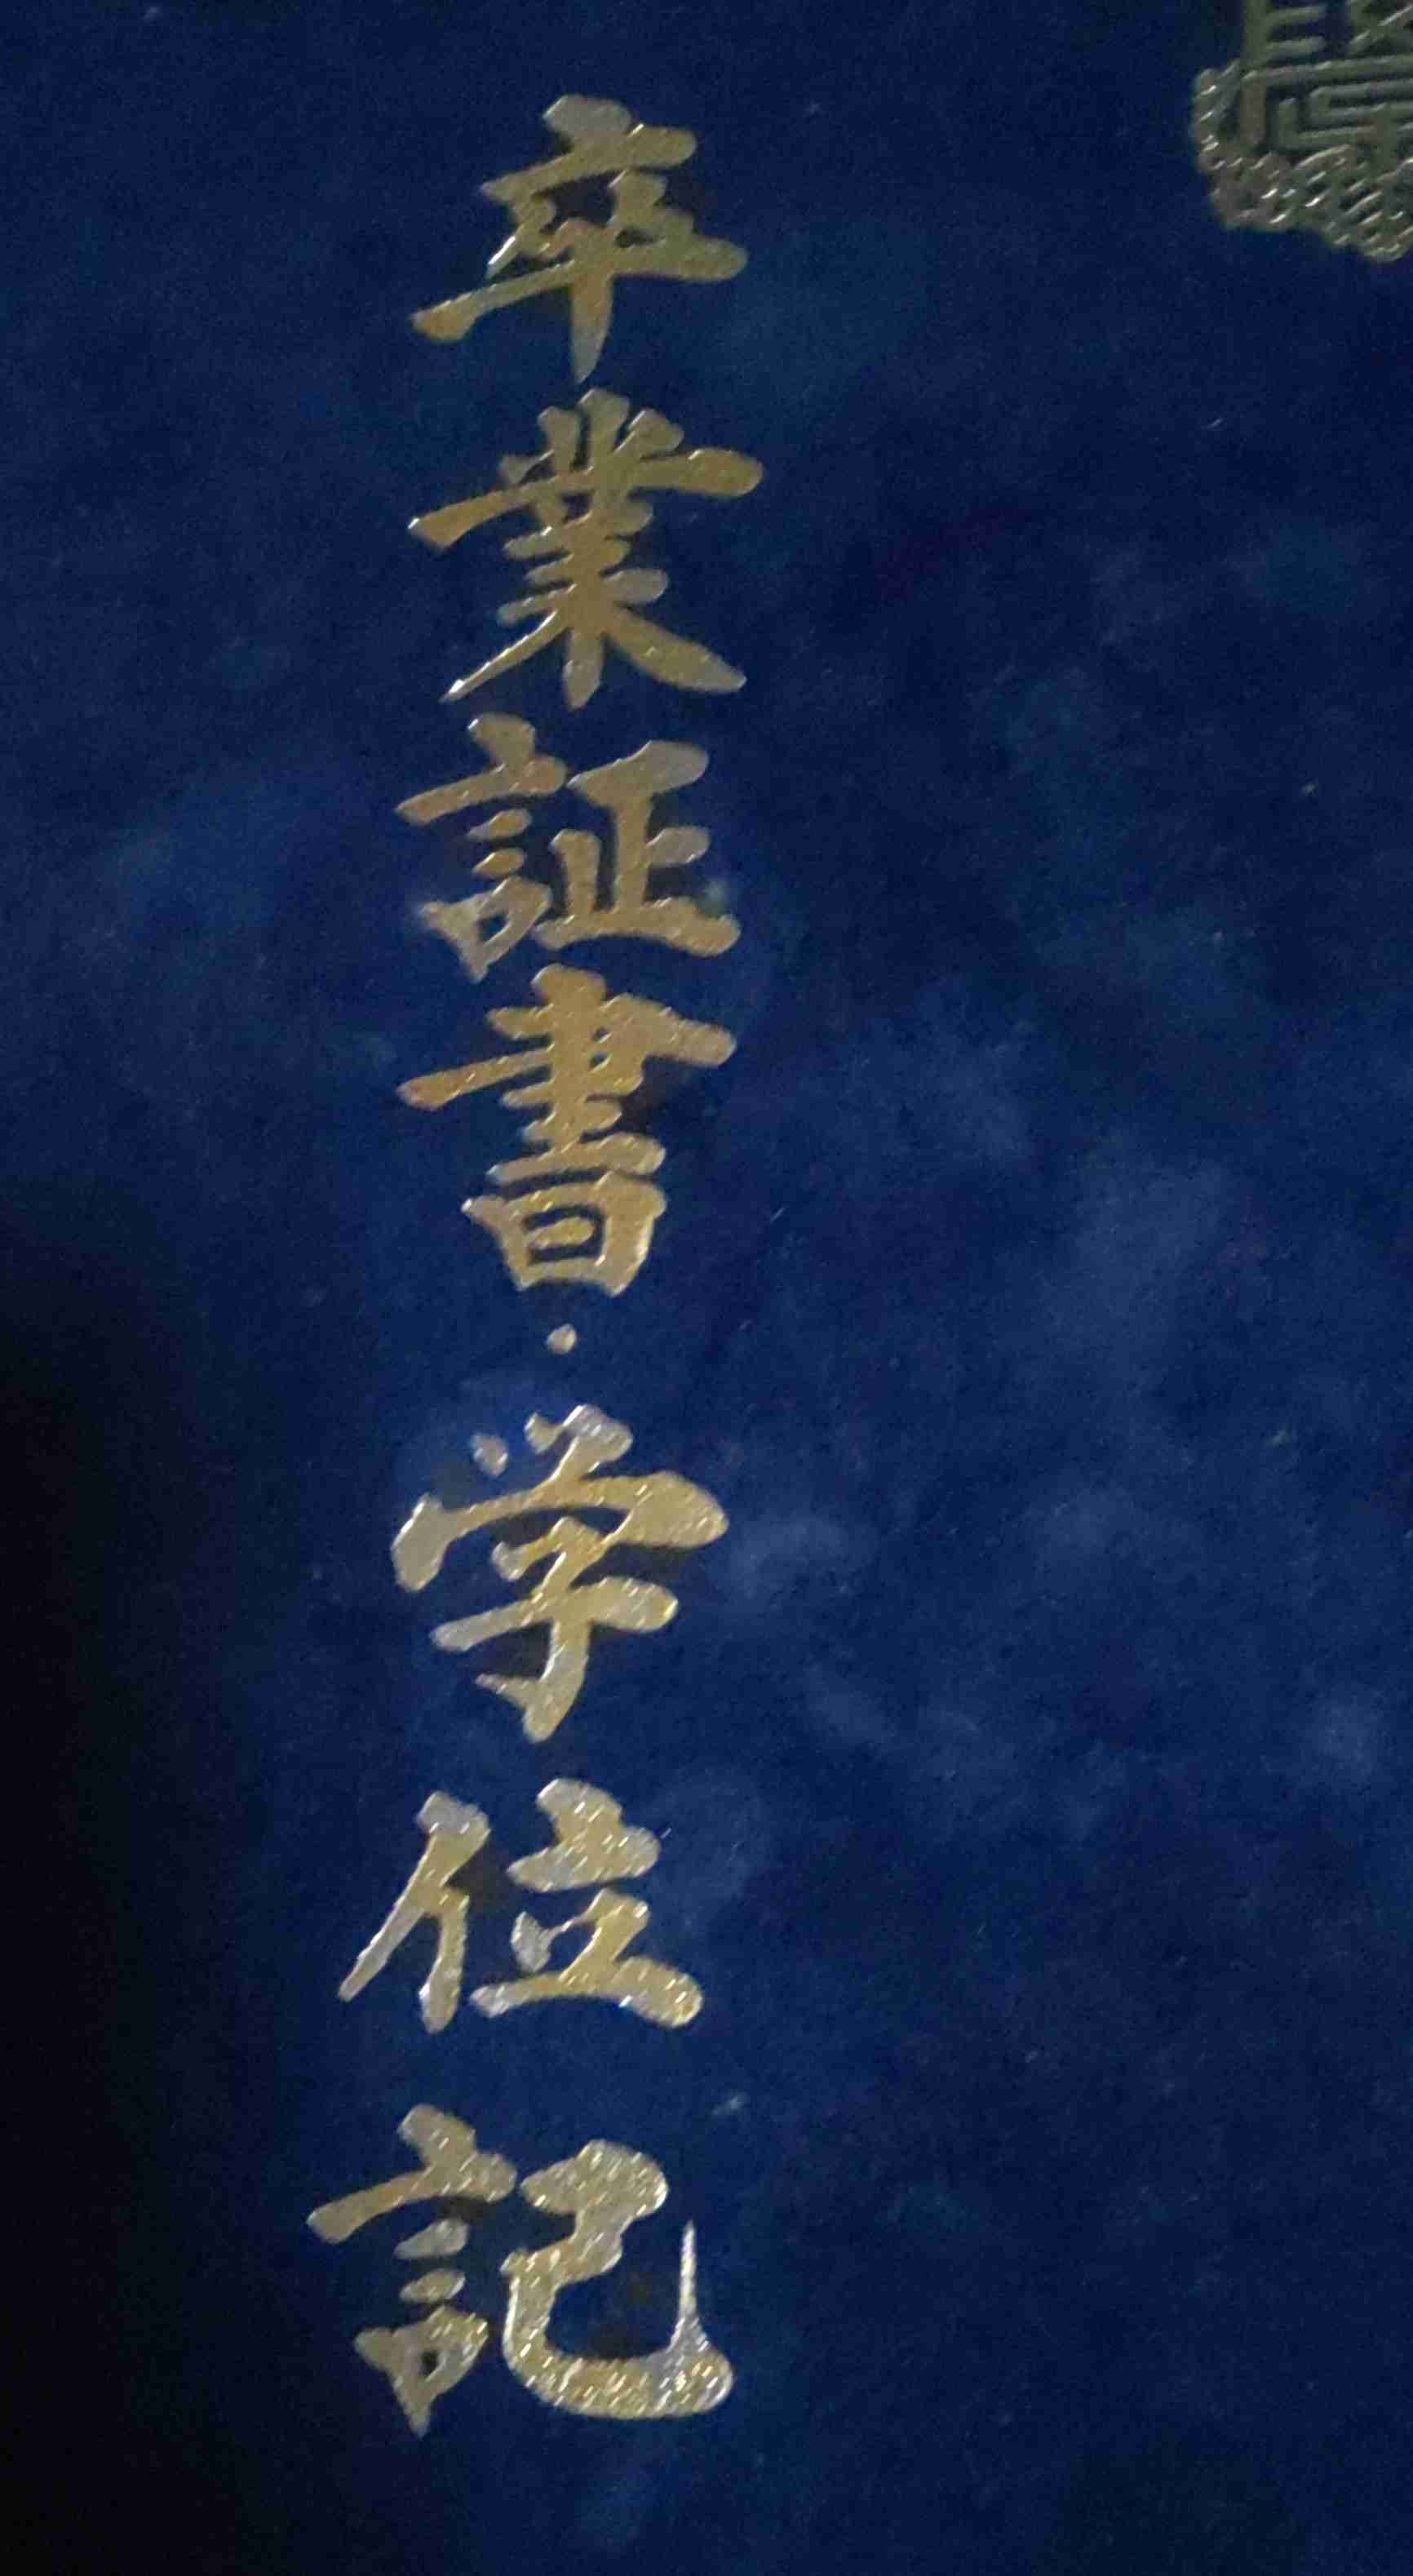 卒業証書・学位記